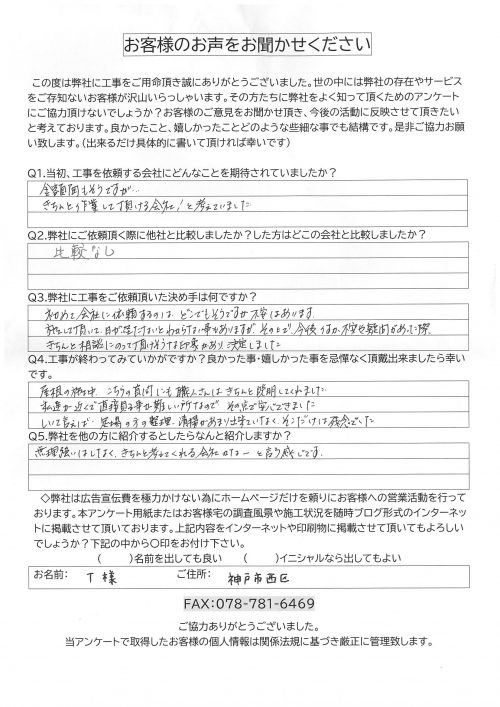 お客様のお声をお聞かせください
この度は弊社に工事をご用命頂き誠にありがとうございました。世の中には弊社の存在やサービス
をご存知ないお客様が沢山いらっしゃいます。その方たちに弊社をよく知って頂くためのアンケート
にご協力頂けないでしょうか？お客様のご意見をお聞かせ頂き、今後の活動に反映させて頂きたい
と考えております。良かったこと、嬉しかったことどのような些細な事でも結構です。是非ご協力お願
い致します。（出来るだけ具体的に書いて頂ければ幸いです）
Q1.当初、工事を依頼する会社にどんなことを期待されていましたか？
金額面もそうですが…
きちんと作業して頂ける会社！と考えていました
Q2.弊社にご依頼頂く際に他社と比較しましたか？した方はどこの会社と比較しましたか？
比較なし
Q3.弊社に工事をご依頼頂いた決め手は何ですか？
初めて会社に依頼するのは どこでもそうですが不安はあります.
施工して頂いて、日が経たないとわからない事もありますが、その上で 今後、不安や疑問があった際
きちんと相談にのって頂けそうな印象があり 決定しました
Q4.工事が終わってみていかがですか？良かった事・嬉しかった事を忌憚なく頂戴出来ましたら幸い
です。
屋根の施工中 こちらの質問にも 職人さんは きちんと説明してくれました
私達が近くで直接見る事が難しい所なので その点で安心できました
しいて言えば 足場の方の整理、清掃があまり出来ていなく、そこだけは残念でした
Q5.弊社を他の方に紹介するとしたらなんと紹介しますか？
無理強いはしなく、きちんと考えてくれる会社かなーと言う感じです.
◇弊社は広告宣伝費を極力かけない為にホームページだけを頼りにお客様への営業活動を行って
おります。本アンケート用紙またはお客様宅の調査風景や施工状況を随時ブログ形式のインターネッ
トに掲載させて頂いております。上記内容をインターネットや印刷物に掲載させて頂いてもよろしい
でしょうか？下記の中から〇印をお付け下さい。
（　　）名前を出しても良い　（　　）イニシャルなら出してもよい
お名前： T 様 ご住所： 神戸市西区
FAX：078-781-6469
ご協力ありがとうございました。
当アンケートで取得したお客様の個人情報は関係法規に基づき厳正に管理致します。